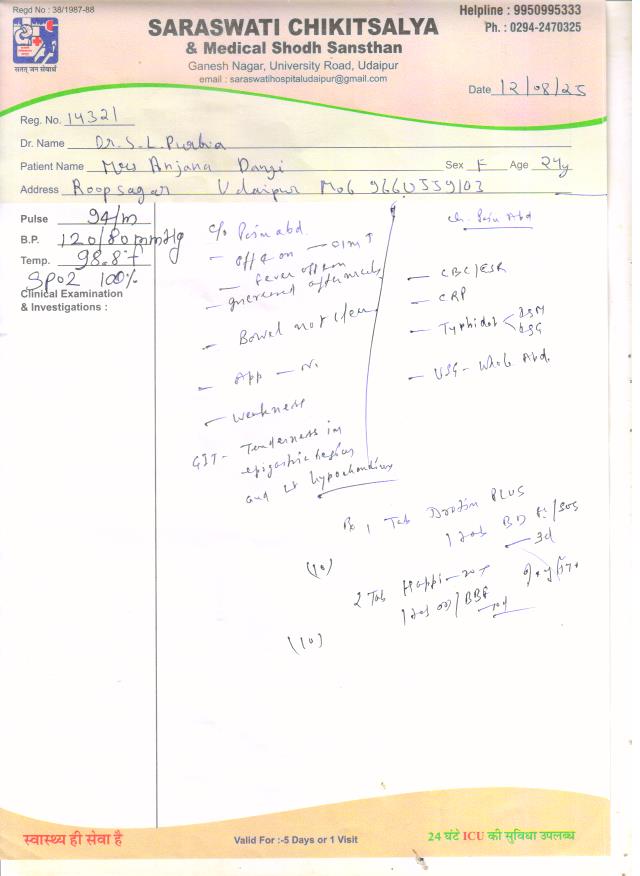 Regd No : 38/1987-88
सतत् जन सेवार्थ
SARASWATI CHIKITSALYA
& Medical Shodh Sansthan
Ganesh Nagar, University Road, Udaipur
email : saraswatihospitaludaipur@gmail.com
Helpline : 9950995333
Ph. : 0294-2470325
Date 12/08/25
Reg. No. 14321
Dr. Name Dr. S. L. Purbia
Patient Name Mrs Anjana Dangi Sex F Age 24y
Address Roopsagar Udaipur Mob
Pulse 94/m
B.P. 120/80 mmHg
Temp. 98.8°f
SPO2 100%
Clinical Examination
& Investigations :
c/o Pain abd.
- off & on
- fever off & on
- aftermeals
- Bowel not clear
- App - N.
- weakness
GIT- Tenderness in
epigastric region
and Lt hypochondrium
Ch. Pain Abd
- CBC/ESR
- CRP
- Typhidot < IGM
IGG
- USG - Whole Abd.
Rx 1 Tab Drotin PLUS
1 tab BD /SOS
- 3d
(10)
2 Tab Happi-
1 tab OD/BBF
10d
(10)
स्वास्थ्य ही सेवा है
Valid For :-5 Days or 1 Visit
24 घंटे ICU की सुविधा उपलब्ध